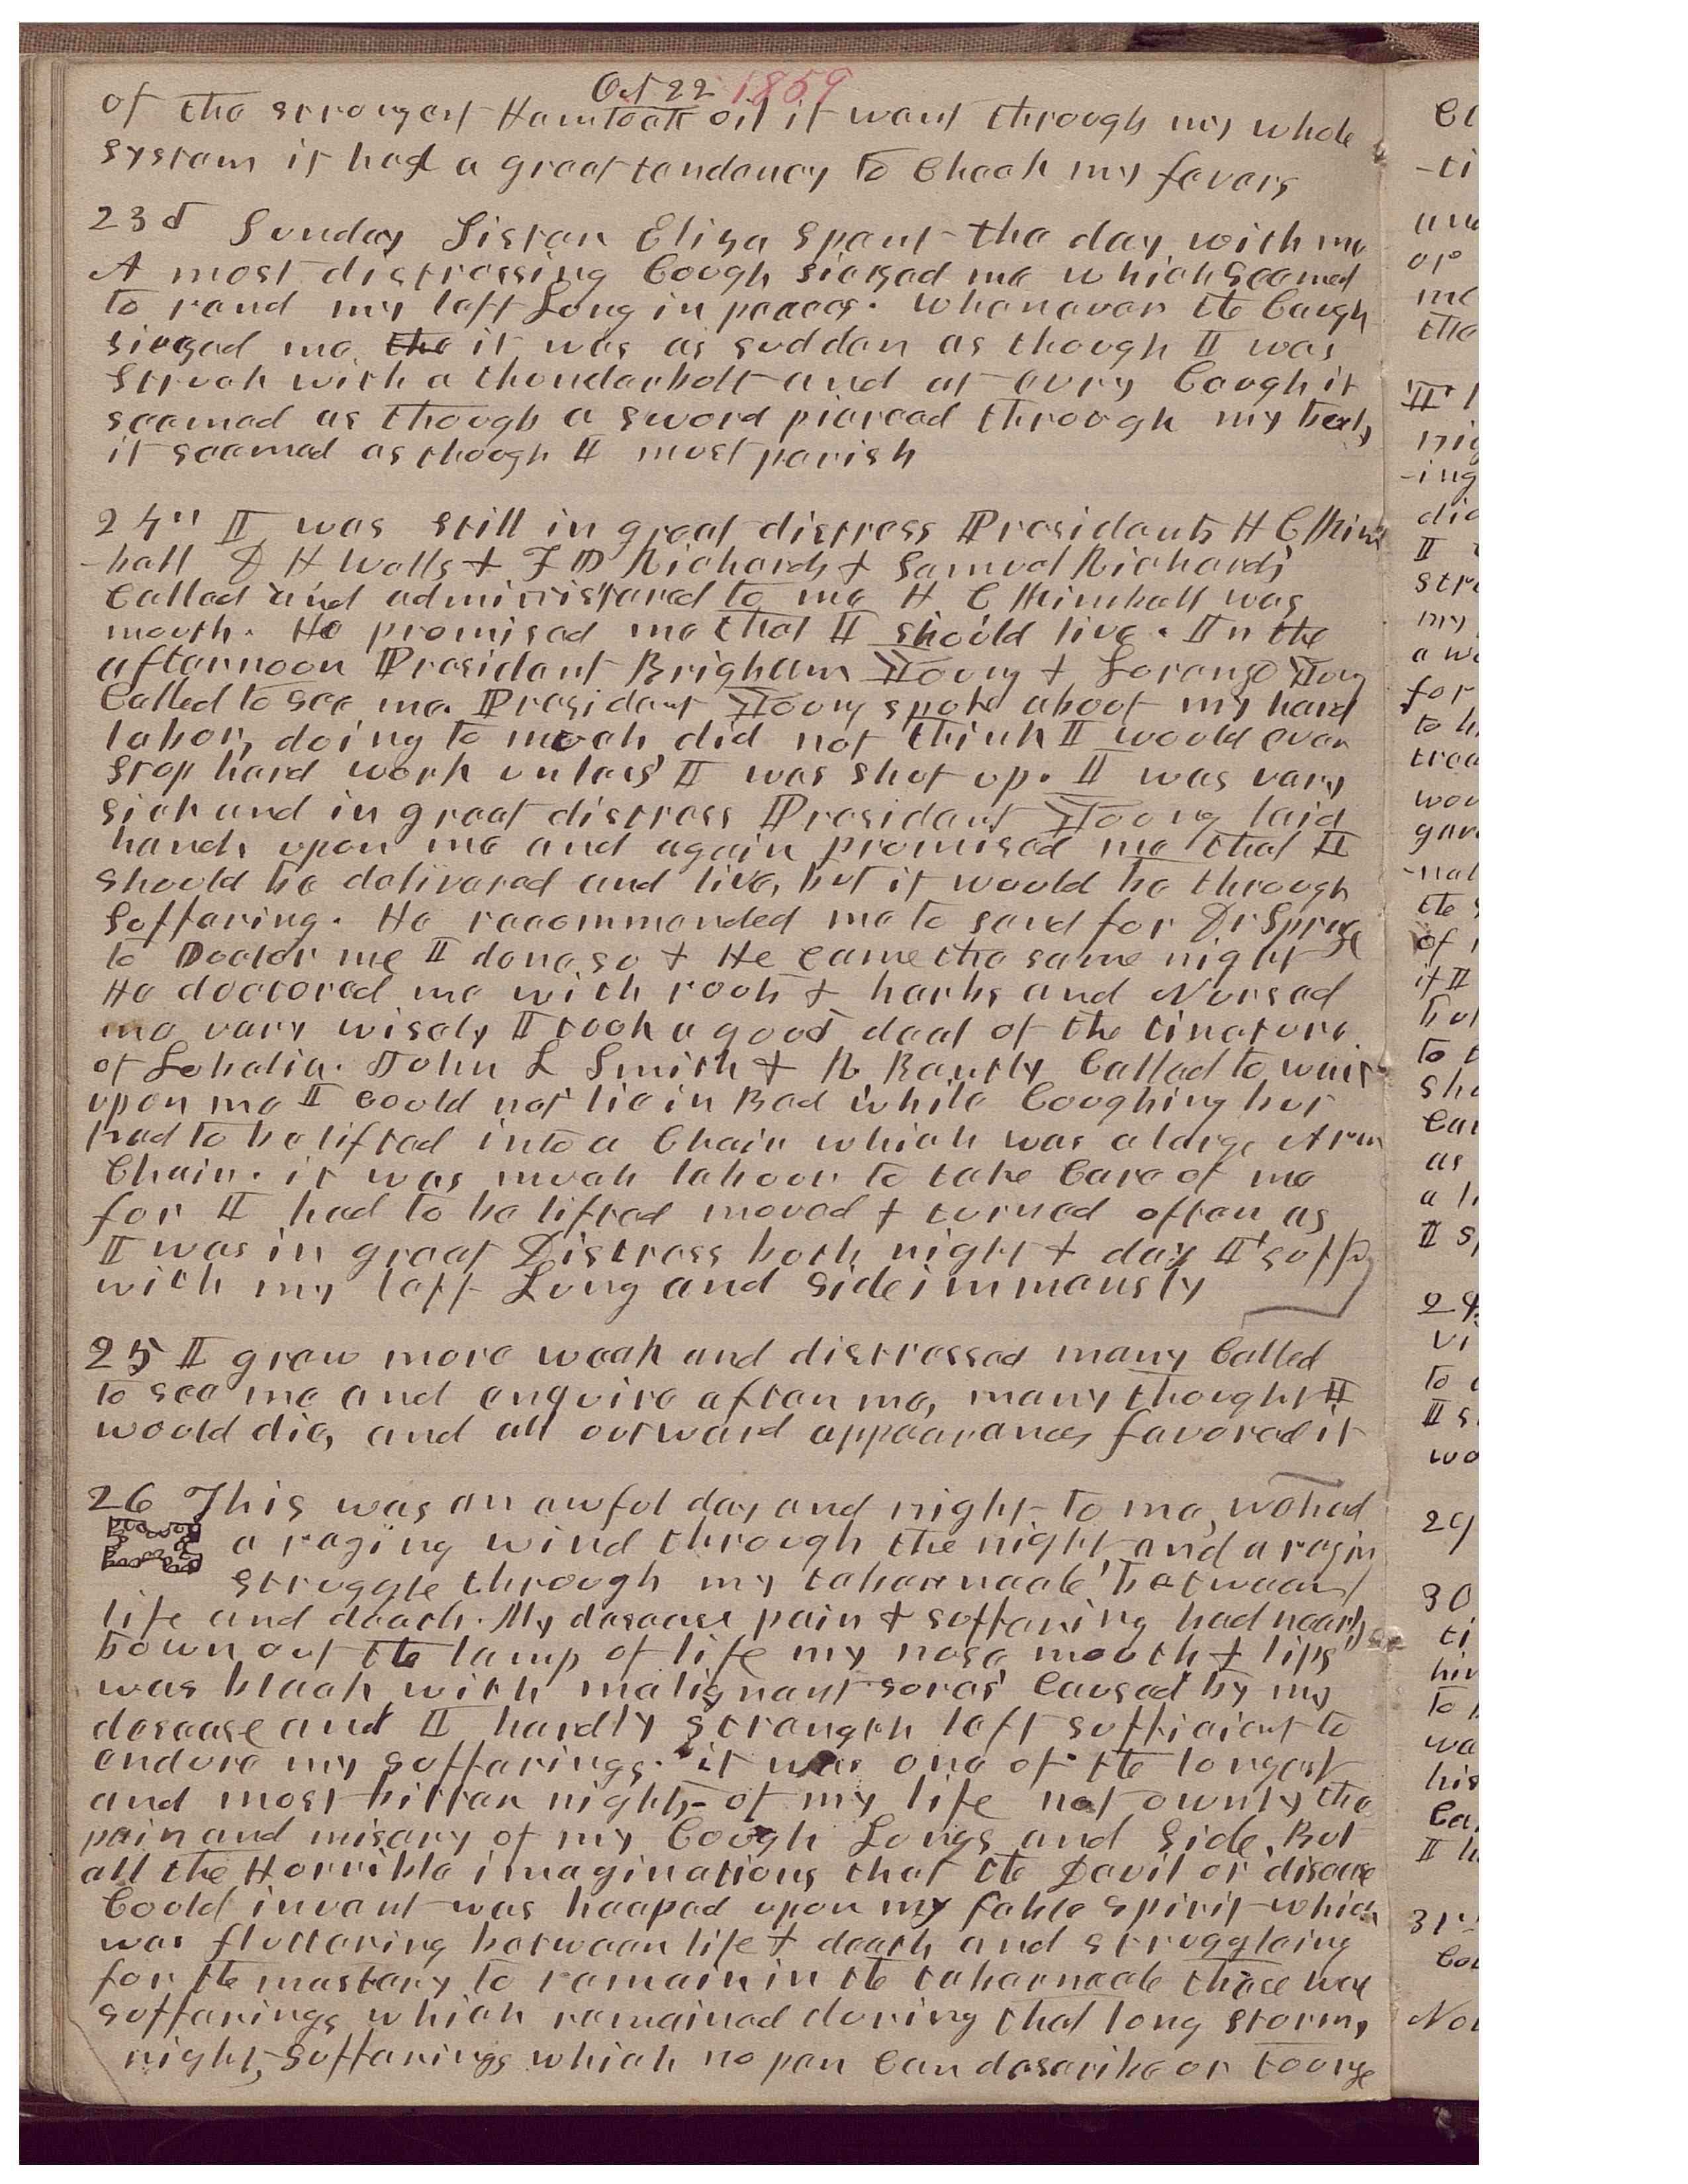 Oct 22 1859
of the strongest Hemlock oil it went through my whole
system it had a great tendency to Check my fevers
23d Sunday Sister Eliza Spent the day with me
A most distressing Cough siezed me which seemed
to rend my left Lung in peaces. whenever the Cough
siezed me the it was as sudden as though I was
Struck with a thunderbolt and at evry Cough it
seemed as though a sword pierced through my body
it seemed as though I must perish
24" I was still in great distress Presidents H C Kim
-ball D H Wells + F D Richards + Samuel Richards
Called and administered to me H C Kimball was
mouth. He promised me that I should live. In the
afternoon President Brigham Young + Lorenzo Young
Called to see me. President Young spoke about my hard
labor, doing to much did not think I would ever
stop hard work unless I was shut up. I was very
sick and in great distress President Young laid
hands upon me and again promised me that I
should be delivered and live, but it would be through
suffering. He recommended me to send for Dr Sprage
to Doctor me I done so + He came the same night
He doctored me with roots + harbs and Nursed
me very wisely I took a good deal of the tincture
of Lobelia. John L Smith + R Bently Called to wait
upon me I could not lie in Bed while Coughing but
had to be lifted into a Chair which was a large Arm
Chair. it was much labour to take Care of me
for I had to be lifted moved + turned often as
I was in great Distress both night + day I suff
with my left Lung and side immensly
25 I grew more weak and distressed many Called
to see me and enquire after me, many thought I
would die, and all outward appearances favored it
26 This was an awful day and night to me, we had
a raging wind through the night and a ragin
struggle through my tabernacle between
life and death. My desease pain + suffering had nearly
bown out the lamp of life my nose mouth + lips
was black with malignant sores Caused by my
desease and I hardly strength left sufficient to
endure my sufferings. it was one of the longest
and most bitter nights of my life not ownly the
pain and misery of my Cough Lungs and Side, But
all the Horrible imaginations that the Devil or disease
Could invent was heaped upon my feble spirit which
was fluttering between life + death and struggleing
for the mastery to remain in the tabernacle these were
sufferings which remained during that long stormy
night, sufferings which no pen can describe or tounge